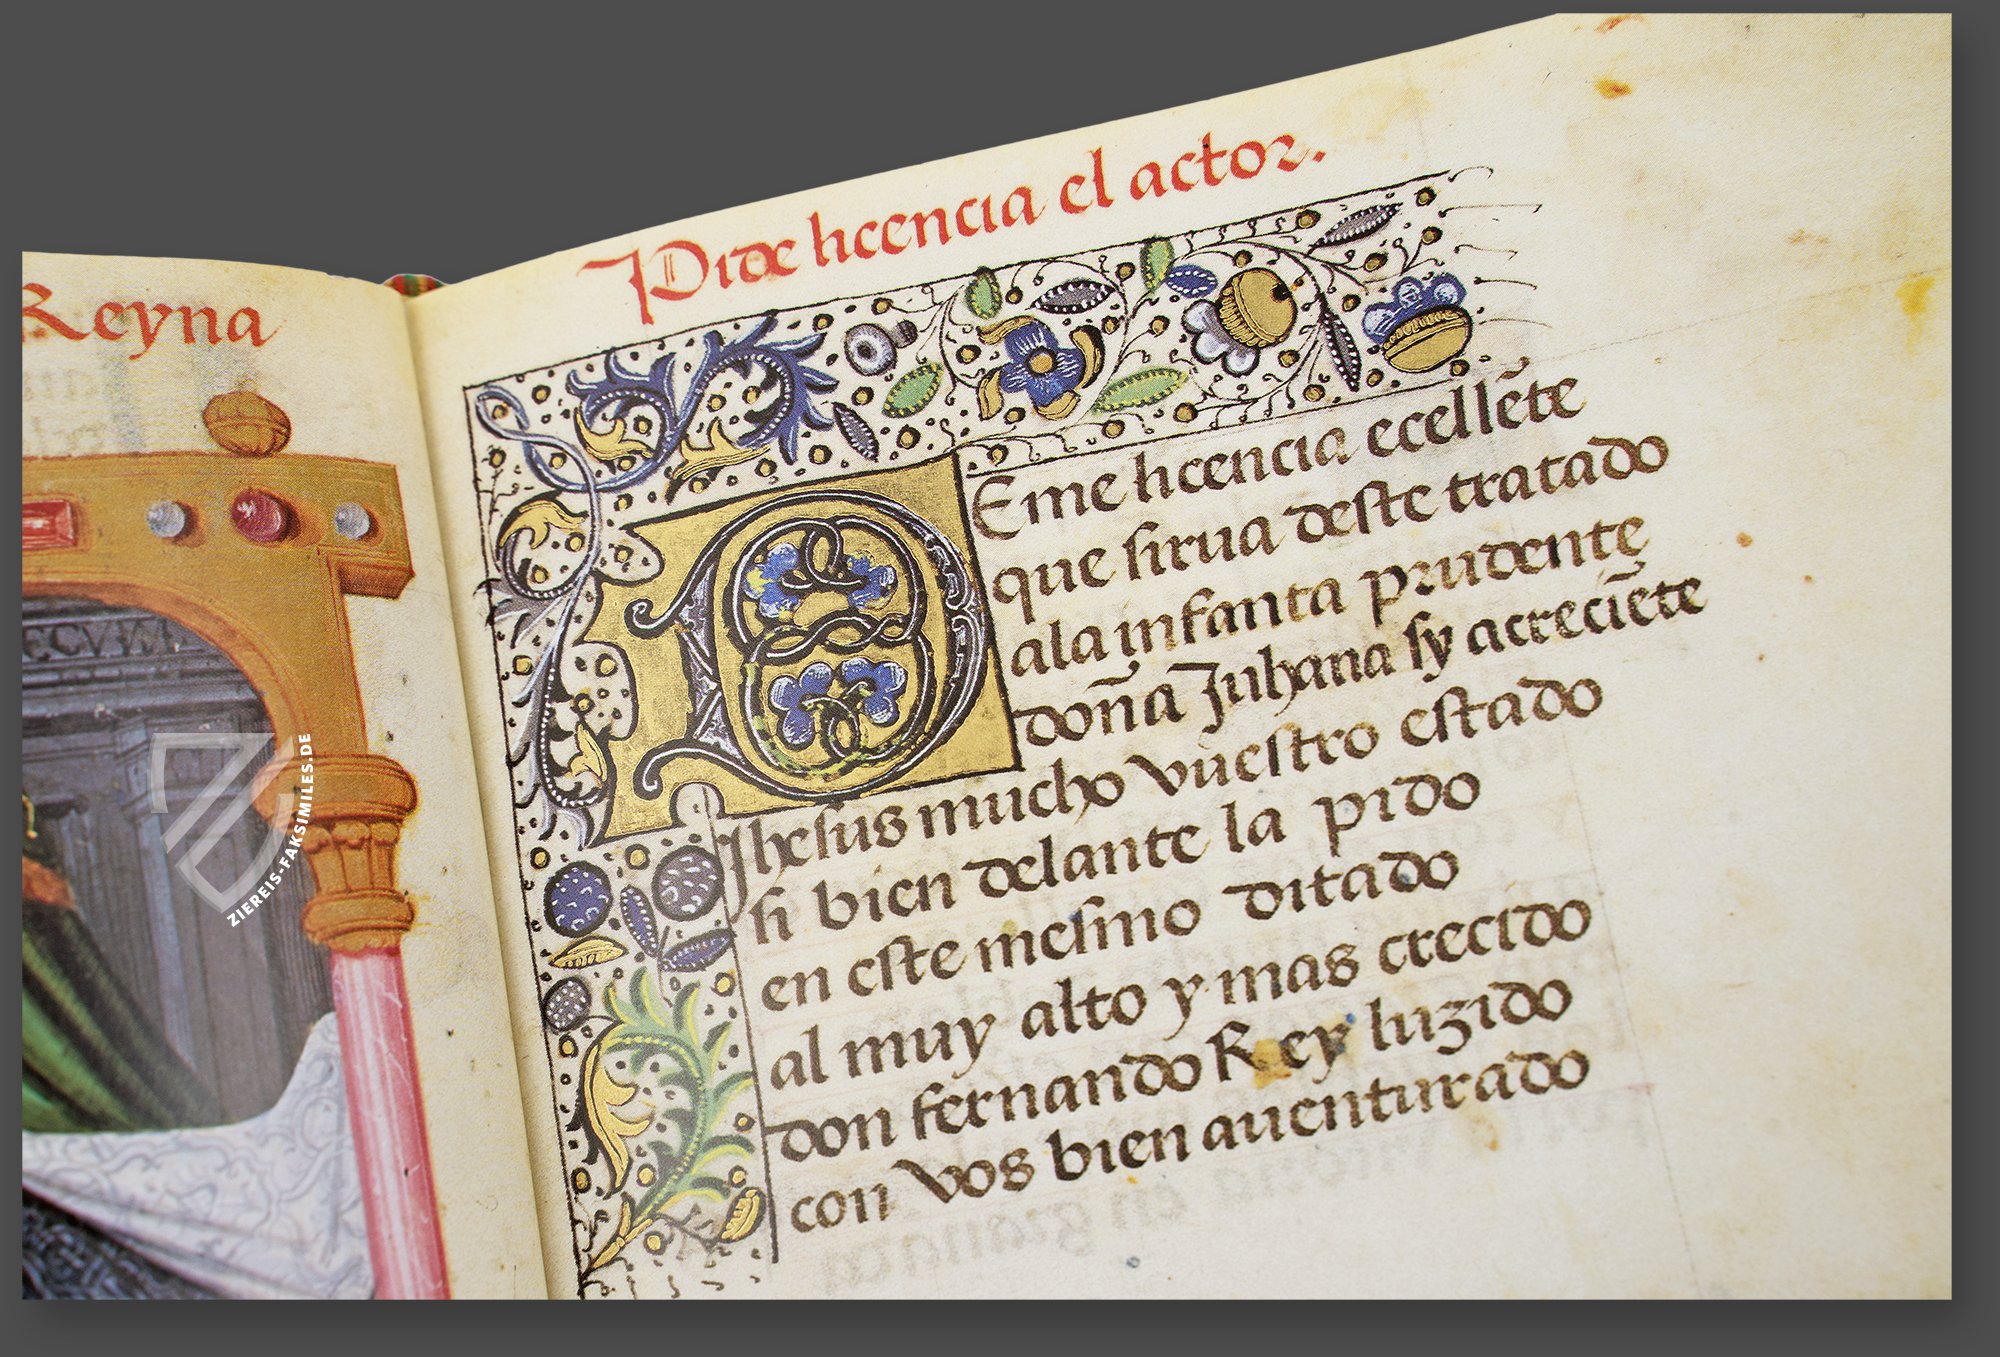 Reyna
Pide licencia el actor.
DEme licencia ecellẽte
que sirua deste tratado
ala infanta prudente
doña Juhana sy acreciẽte
Jhesus mucho vuestro estado
si bien delante la pido
en este mesmo ditado
al muy alto y mas crecido
don fernando Rey luzido
con vos bien auenturado
ZIEREIS-FAKSIMILES.DE